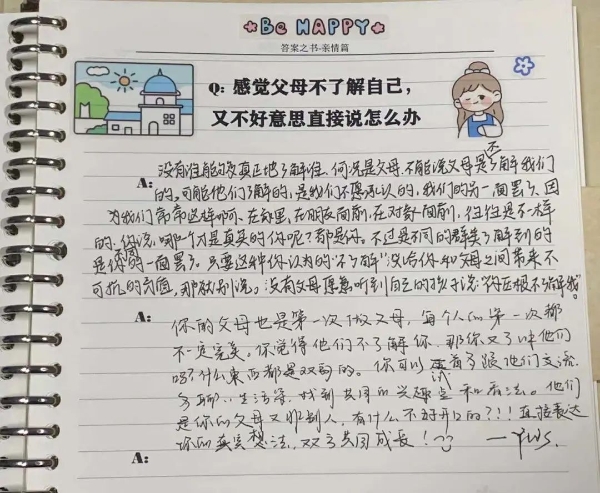 Be HAPPY
答案之书-亲情篇
Q: 感觉父母不了解自己，
又不好意思直接说怎么办
A: 没有谁能够真正地了解谁，何况是父母，不能说父母是不了解我们
的，可能他们了解的，是我们不愿承认的，我们的另一面罢了，因
为我们常常这样啊，在家里，在朋友面前，在对象面前，往往是不一样
的，你说，哪一个才是真实的你呢？都是你。不过是不同的群类了解到的
是你的一面罢了，只要这种你认为的"不了解"没给你和父母之间带来不
可抗的，那就别说。没有父母愿意听到自己的孩子说"你压根不了解我"。
A: 你的父母也是第一次做父母，每个人的第一次都
不一定完美。你觉得他们不了解你，那你又了解他们
吗？什么东西都是双向的。你可以试着多跟他们交流
多聊生活等，找到共同的兴趣点和看法。他们
是你的父母又非别人，有什么不好开口的？？！直接表达
你的真实想法，双方共同成长！
A: